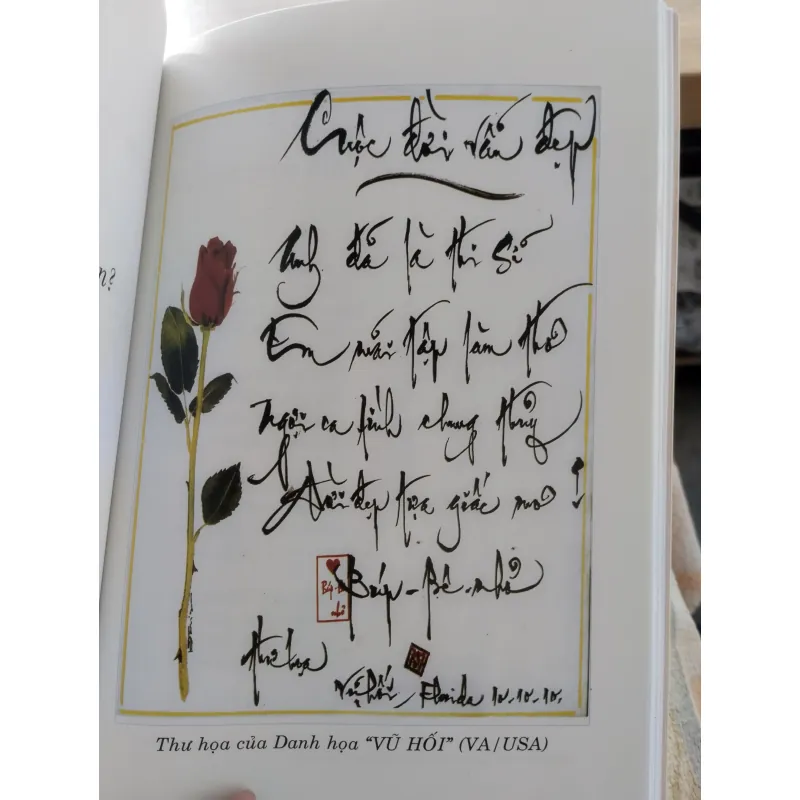 n?
Cuộc đời vẫn đẹp
Anh đã là thi sĩ
Em mới tập làm thơ
Ngợi ca tình chung thủy
Đời đẹp tựa giấc mơ
Búp-Bê-nhỏ
thư họa
Vũ Hối, Florida 10.10.10.
Thư họa của Danh họa “VŨ HỐI” (VA/USA)